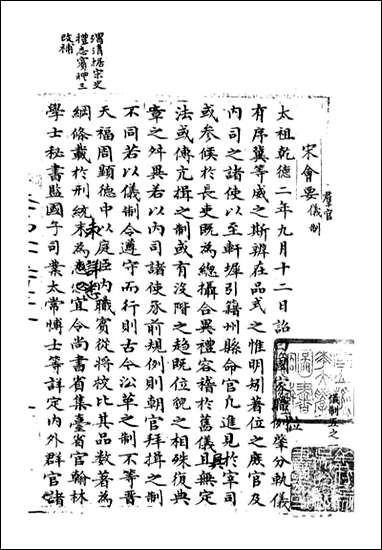 渭清據宋史
禮志賓禮三
改補
宋會要
羣官
儀制
儀制五之一
太祖乾德二年九月十二日詔曰國家職例肇分軌儀
位
有序冀等威之斯辨在品式之惟明矧著位之庶官及
內司之諸使以至軒墀引籍州縣命官凡進見於宰司
或參候於長吏既為總攝合異禮容稽於舊儀且無定
具
法或傳亢揖之制或有沒階之趨既位貌之相殊復典
章之舛異若以內司諸使承前規例則朝官拜揖之制
不同若以儀制令遵守而行則古今沿革之制不等晉
天福周顯德中以庭臣內職賓從將校比其品數著為
綱條載於刑統未為詳悉宜令尚書省集臺省官翰林
未詳悉
學士秘書監國子司業太常博士等詳定內外群官諸